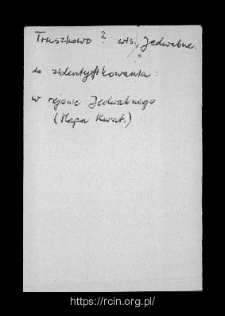 Truszkowo ? wś, Jedwabne.
do zidentyfikowania:
w rejonie Jedwabnego
(Mapa Kwat.)
https://rcin.org.pl/